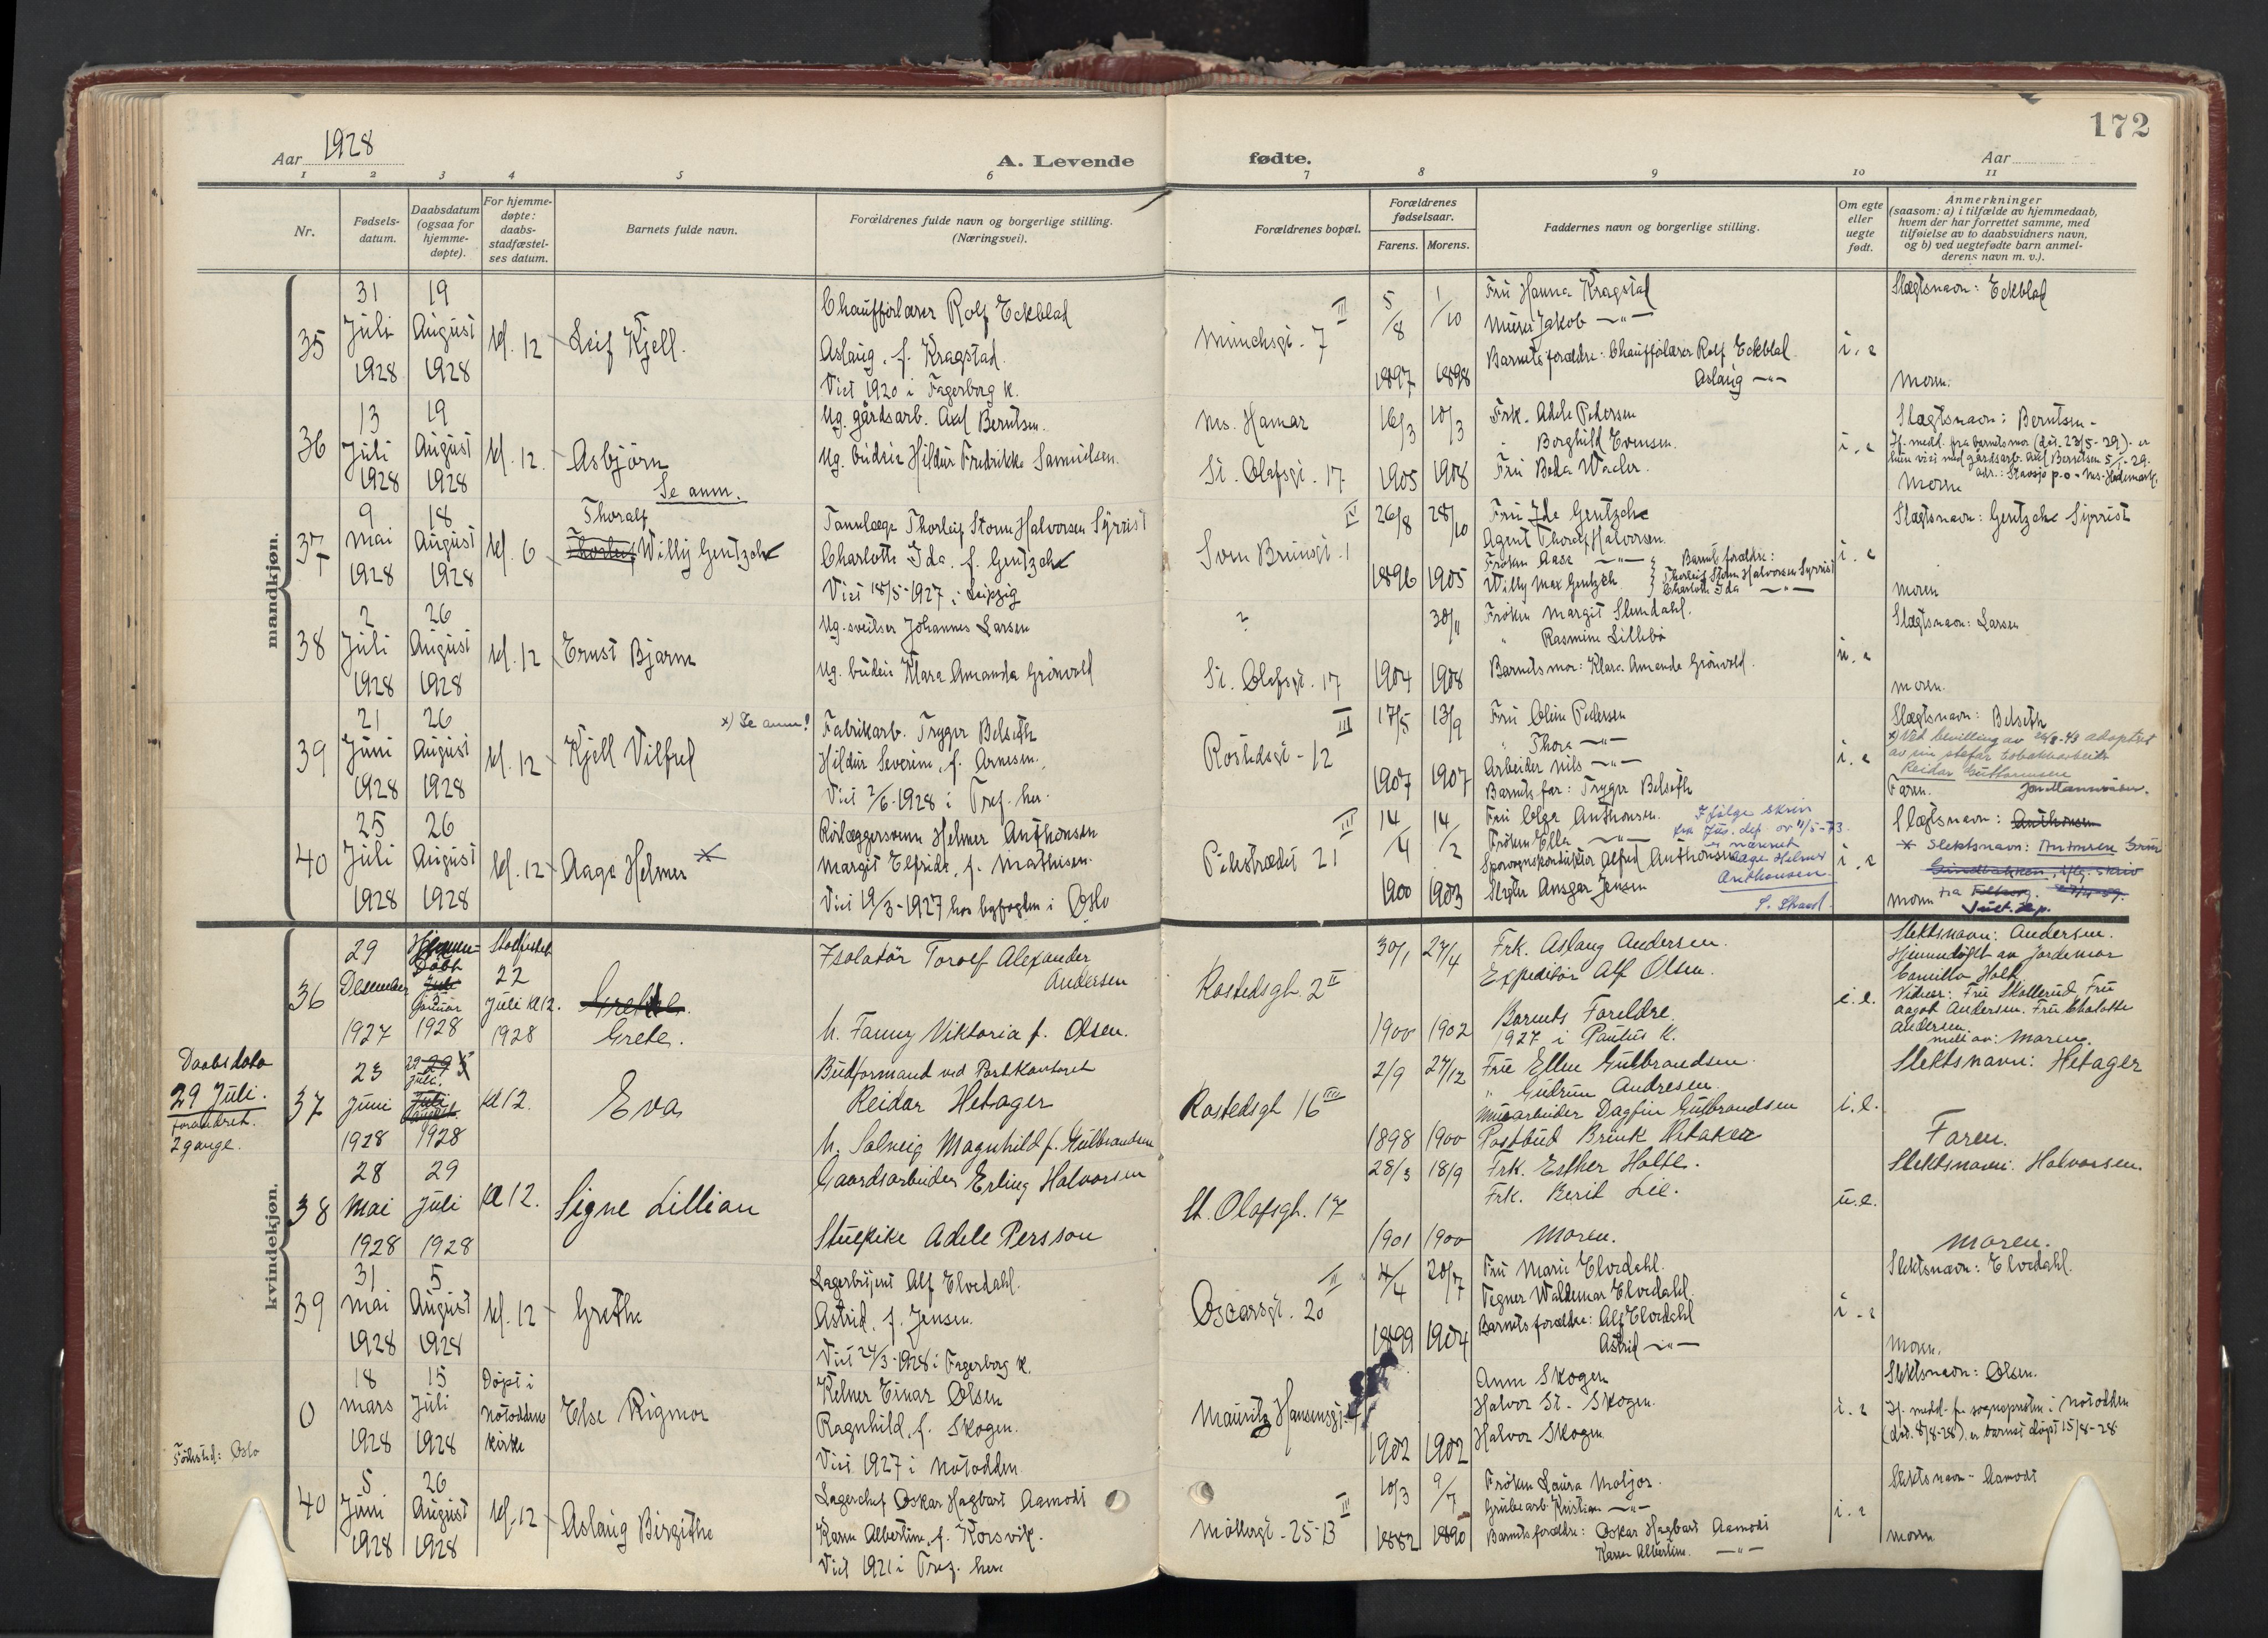 172
Aar 1928
A. Levende
fødte.
Aar
1 2 3 4 5 6 7 8 9 10 11
Nr.
Fødsels-
datum.
Daabsdatum
(ogsaa for
hjemme-
døpte).
For hjemme-
døpte:
daabs-
stadfæstel-
ses datum.
Barnets fulde navn.
Forældrenes fulde navn og borgerlige stilling.
(Næringsvei).
Forældrenes bopæl.
Forældrenes
fødselsaar.
Farens. Morens.
Faddernes navn og borgerlige stilling.
Om egte
eller
uegte
født.
Anmerkninger
(saasom: a) i tilfælde av hjemmedaab,
hvem der har forrettet samme, med
tilføielse av to daabsvidners navn,
og b) ved uegtefødte barn anmel-
derens navn m. v.).
mandkjøn.
35
31
Juli
1928
19
August
1928
kl. 12
Leif Kjell.
Chaufførlærer Rolf Eckblad
Aslaug, f. Kragstad.
Viet 1920 i Fagerborg k.
Munchsgt. 7 III
5/8
1897
1/10
1898
Fru Hanna Kragstad
Murer Jakob —"—
Barnets forældre: Chaufførlærer Rolf Eckblad.
Aslaug —"—
i. e
Slægtsnavn: Eckblad
Moren.
36
13
Juli
1928
19
August
1928
kl. 12.
Asbjørn
Se anm.
Ug. gårdsarb. Axel Berntsen.
Ug. budeie Hildur Fredrikke Samuelsen.
Nes. Hamar
St. Olafsgt. 17
16/3
1905
10/3
1908
Frk. Adele Petersen
" Borghild Evensen.
Fru Beda Wacler.
i. e
Slægtsnavn: Berntsen -
If. medd. fra barnets mor (dat. 23/5-29) - er
hun viet med gårdsarb. Axel Berntsen 5/1-29.
adr.: Stavsjø p.o - Nes-Hedemark.
Moren
37
T
9
mai
1928
18
August
1928
kl. 6
Thoralf
Thorleif Willy Gentzsch
Tannlæge Thorleif Storm Halvorsen Syrrist
Charlotte Ida. f. Gentzsch
Viet 18/5-1927 i Leipzig
Sven Brunsgt. 1 IV
26/8
1896
28/10
1905
Fru Ida Gentzsch
Agent Thoralf Halvorsen.
Frøken Aase —"—
Willy Max Gentzsch
Barnets forældre:
Thorleif Storm Halvorsen Syrrist
Charlotte Ida —"—
i. e
Slægtsnavn: Gentzsch Syrrist
Moren
38
2
Juli
1928
26
August
1928
kl. 12
Ernst Bjarne
Ug. sveitser Johannes Larsen
Ug. budeie Klara Amanda Grønvold
?
St. Olafsgt. 17
1904
30/11
1908
Frøken Margit Slemdahl.
" Rasmine Lillebø
Barnets mor: Klara Amanda Grønvold.
u. e
Slægtsnavn: Larsen
moren.
39
21
Juni
1928
26
August
1928
kl. 12
x) Se anm!
Kjell Vilfred
Fabrikarb. Trygve Belseth
Hildur Severine, f. Arnesen.
Viet 2/6-1928 i Tref. her.
Rostedsgt - 12 III
17/5
1907
13/9
1907
Fru Oline Pedersen
" Thora —"—
Arbeider Nils —"—
Barnets far: Trygve Belseth
i. e
Slægtsnavn: Belseth
x) Ved bevilling av 24/8-43 adoptert
av sin stefar tobakkarbeider
Reidar Guttormsen
Faren.
40
25
Juli
1928
26
August
1928
kl. 12
Aage Helmer x
Rørlæggersvenn Helmer Anthonsen
Margit Elfride, f. Mathisen.
Viet 19/3-1927 hos byfogden i Oslo
Pilestrædet 21 III
14/4
1900
14/2
1903
Fru Olga Anthonsen.
Frøken Ella —"—
Sporvognskonduktør Alfred Anthonsen
Slegtn Ansgar Jensen
I følge skriv
fra Jus. dep av 11/5-73.
er navnet
Aage Helmer
Anthonsen.
S. Strand
i. e
Slægtsnavn: Anthonsen
x Slektsnavn: Antonsen
Moren
Just. dep.
kvindekjøn.
36
29
Desember
1927
Hjemme-
døbt
Juli
3
Januar
1928
Stadfestet
22
Juli kl 12.
1928
Grethe.
Grete.
Isolatør Toralf Alexander
Andersen
h. Fanny Viktoria f. Olsen.
Rostedsgt. 2 II
30/1
1900
27/4
1902
Frk. Aslaug Andersen.
Expeditør Alf Olsen.
Barnets Foreldre.
1927 i Paulus K.
e. e.
Slektsnavn: Andersen.
Hjemmedøpt av Jordemor
Camilla Holt
Vidner: Fru Skollerud, Fru
Aagot Andersen. Fru Charlotte
Andersen.
meld av: Moren.
Daabsdato
29 Juli.
forandret.
2 gange.
37
23
Juni
1928
29
Juli.
Juli
August
1928
kl 12.
Eva
Budformand ved Postkontoret
Reidar Hetager
h. Solveig Magnhild f. Gulbrandsen
Rostedsgt 16 III
2/9
1898
27/12
1900
Frue Ellen Gulbrandsen.
" Gudrun Andresen.
Murarbeider Dagfin Gulbrandsen
Postbud Brink Hetaker
i. e.
Slektsnavn: Hetager
Faren.
38
28
Mai
1928
29
Juli
1928
Kl 12.
Signe Lillian
Gaardsarbeider Erling Halvorsen
Stuepike Adele Persson
St. Olafsgt. 17
28/3
1901
18/9
1900
Frk. Esther Holte.
Frk. Berit Lie.
Moren.
u. e.
Slektsnavn: Halvorsen.
Moren.
39
31
mai
1928
5
August
1928
kl. 12
Grethe
Lagerbetjent Alf Elvedahl.
Astrid. f. Jensen.
Viet 24/3-1928 i Fagerborg k.
Oscarsgt. 20 II
4/4
1899
20/7
1904
Fru Marie Elvedahl.
Tegner Waldemar Elvedahl.
Barnets forældre: Alf Elvedahl
Astrid —"—
i. e
Slektsnavn: Elvedahl.
Moren.
Fødested: Oslo
0
18
mars
1928
15
Juli
1928
Døpt i
Notoddens
kirke
Else Rigmor
Kelner Einar Olsen
Ragnhild, f. Skogen.
Viet 1927 i Notodden.
Mauritz Hansensgt.
1902
1902
Anne Skogen
Halvor St. Skogen.
Halvor Skogen
i. e
Slektsnavn: Olsen.
If. medd. fr. sognepresten i Notodden
(dat. 8/8-28) er barnet døpt 15/8-28
40
5
Juni
1928
26
August
1928
kl. 12
Aslaug Birgithe
Lagerchef Oskar Hagbart Aamodt
Karen Albertine, f. Korsvik.
Viet 1921 i Tref. her
Møllergt - 25 B III
10/3
1882
9/7
1890
Frøken Laura Moljor.
Grubearb. Kristian —"—
Barnets forældre: Oskar Hagbart Aamodt
Karen Albertine. —"—
i. e
Slektsnavn - Aamodt
Moren